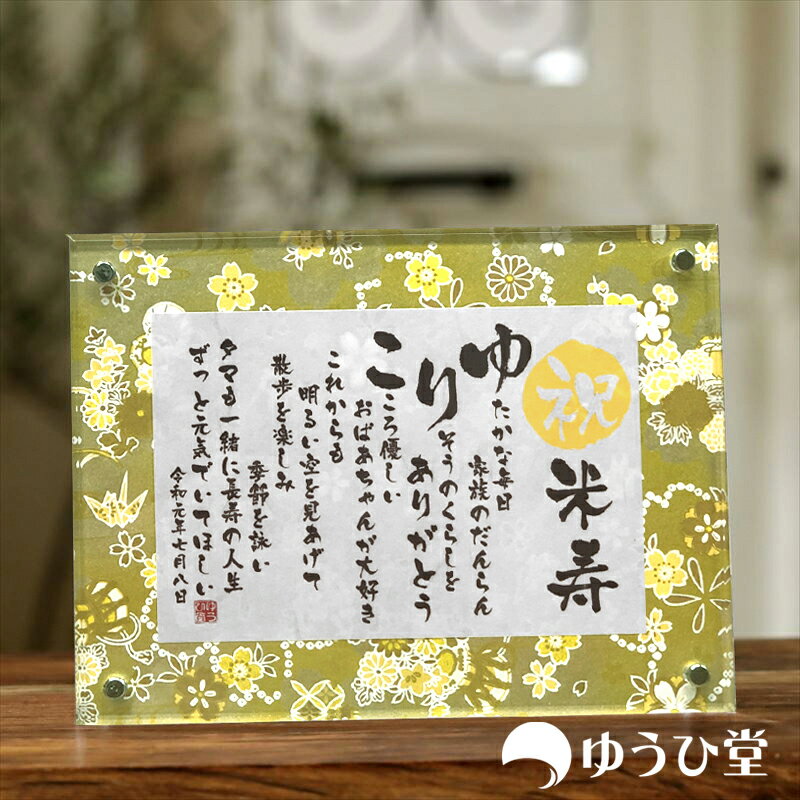 祝
米寿
ゆたかな毎日
家族のだんらん
りそうのくらしを
ありがとう
こころ優しい
おばあちゃんが大好き
これからも
明るい空を見あげて
散歩を楽しみ
季節を詠い
タマも一緒に長寿の人生
ずっと元気でいてほしい
令和元年七月八日
ゆうひ堂